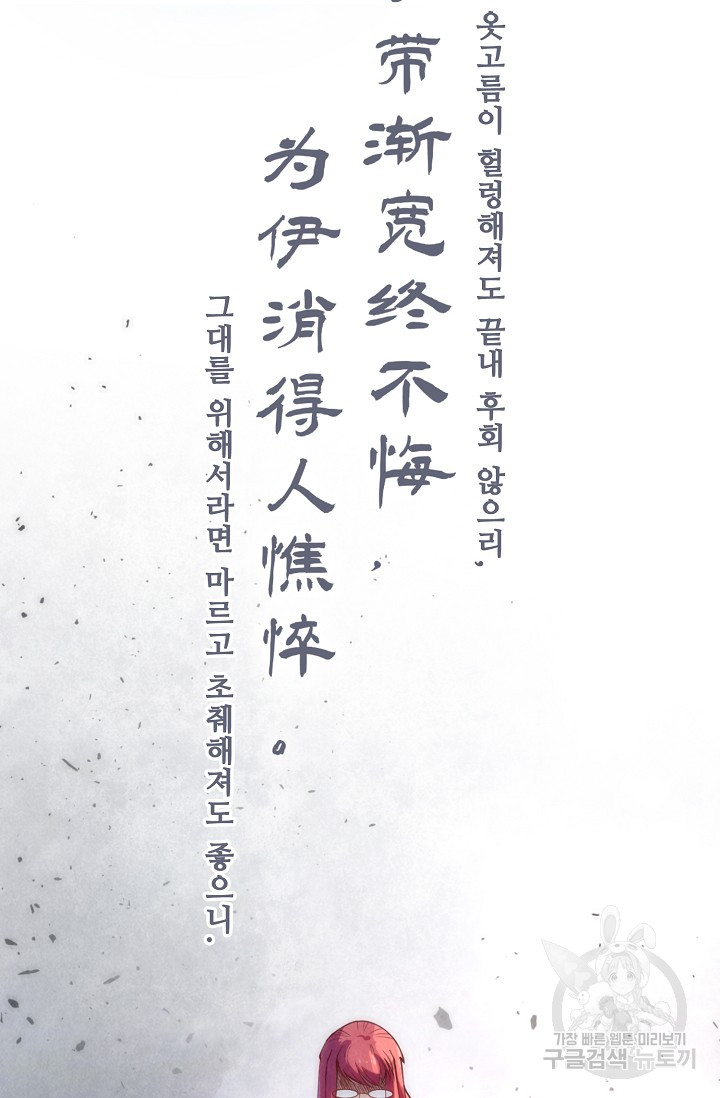 옷고름이 헐렁해져도 끝내 후회 않으리,
带渐宽终不悔，
为伊消得人憔悴。
그대를 위해서라면 마르고 초췌해져도 좋으니.
가장 빠른 웹툰 미리보기
구글검색 뉴토끼